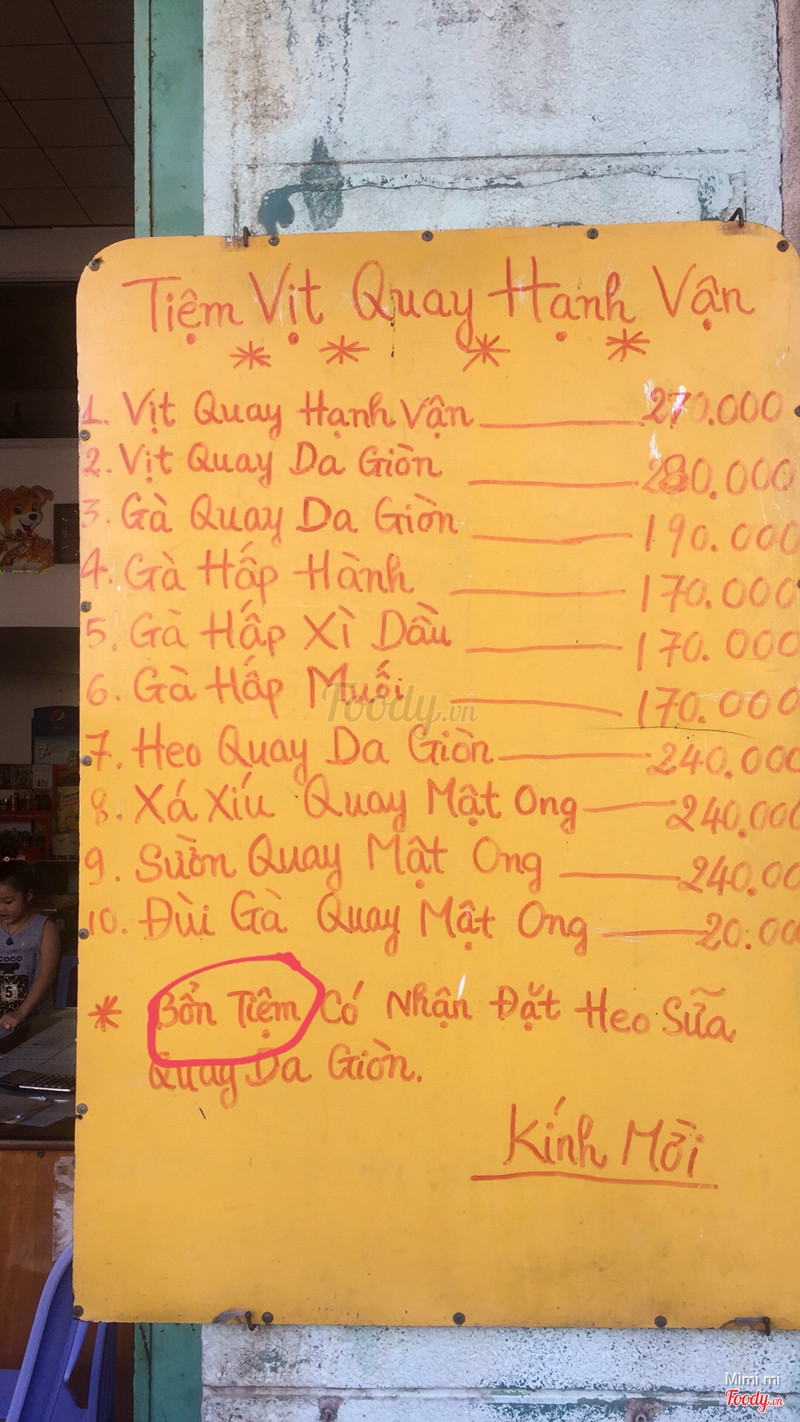 Tiệm Vịt Quay Hạnh Vận
* * * *
1. Vịt Quay Hạnh Vận 270.000
2. Vịt Quay Da Giòn 280.000
3. Gà Quay Da Giòn 190.000
4. Gà Hấp Hành 170.000
5. Gà Hấp Xì Dầu 170.000
6. Gà Hấp Muối 170.000
7. Heo Quay Da Giòn 240.000
8. Xá Xíu Quay Mật Ong 240.000
9. Sườn Quay Mật Ong 240.00
10. Đùi Gà Quay Mật Ong 20.00
* Bổn Tiệm Có Nhận Đặt Heo Sữa
Quay Da Giòn.
Kính Mời
Foody.vn
COCO
5
Mimi mi
Foody.vn